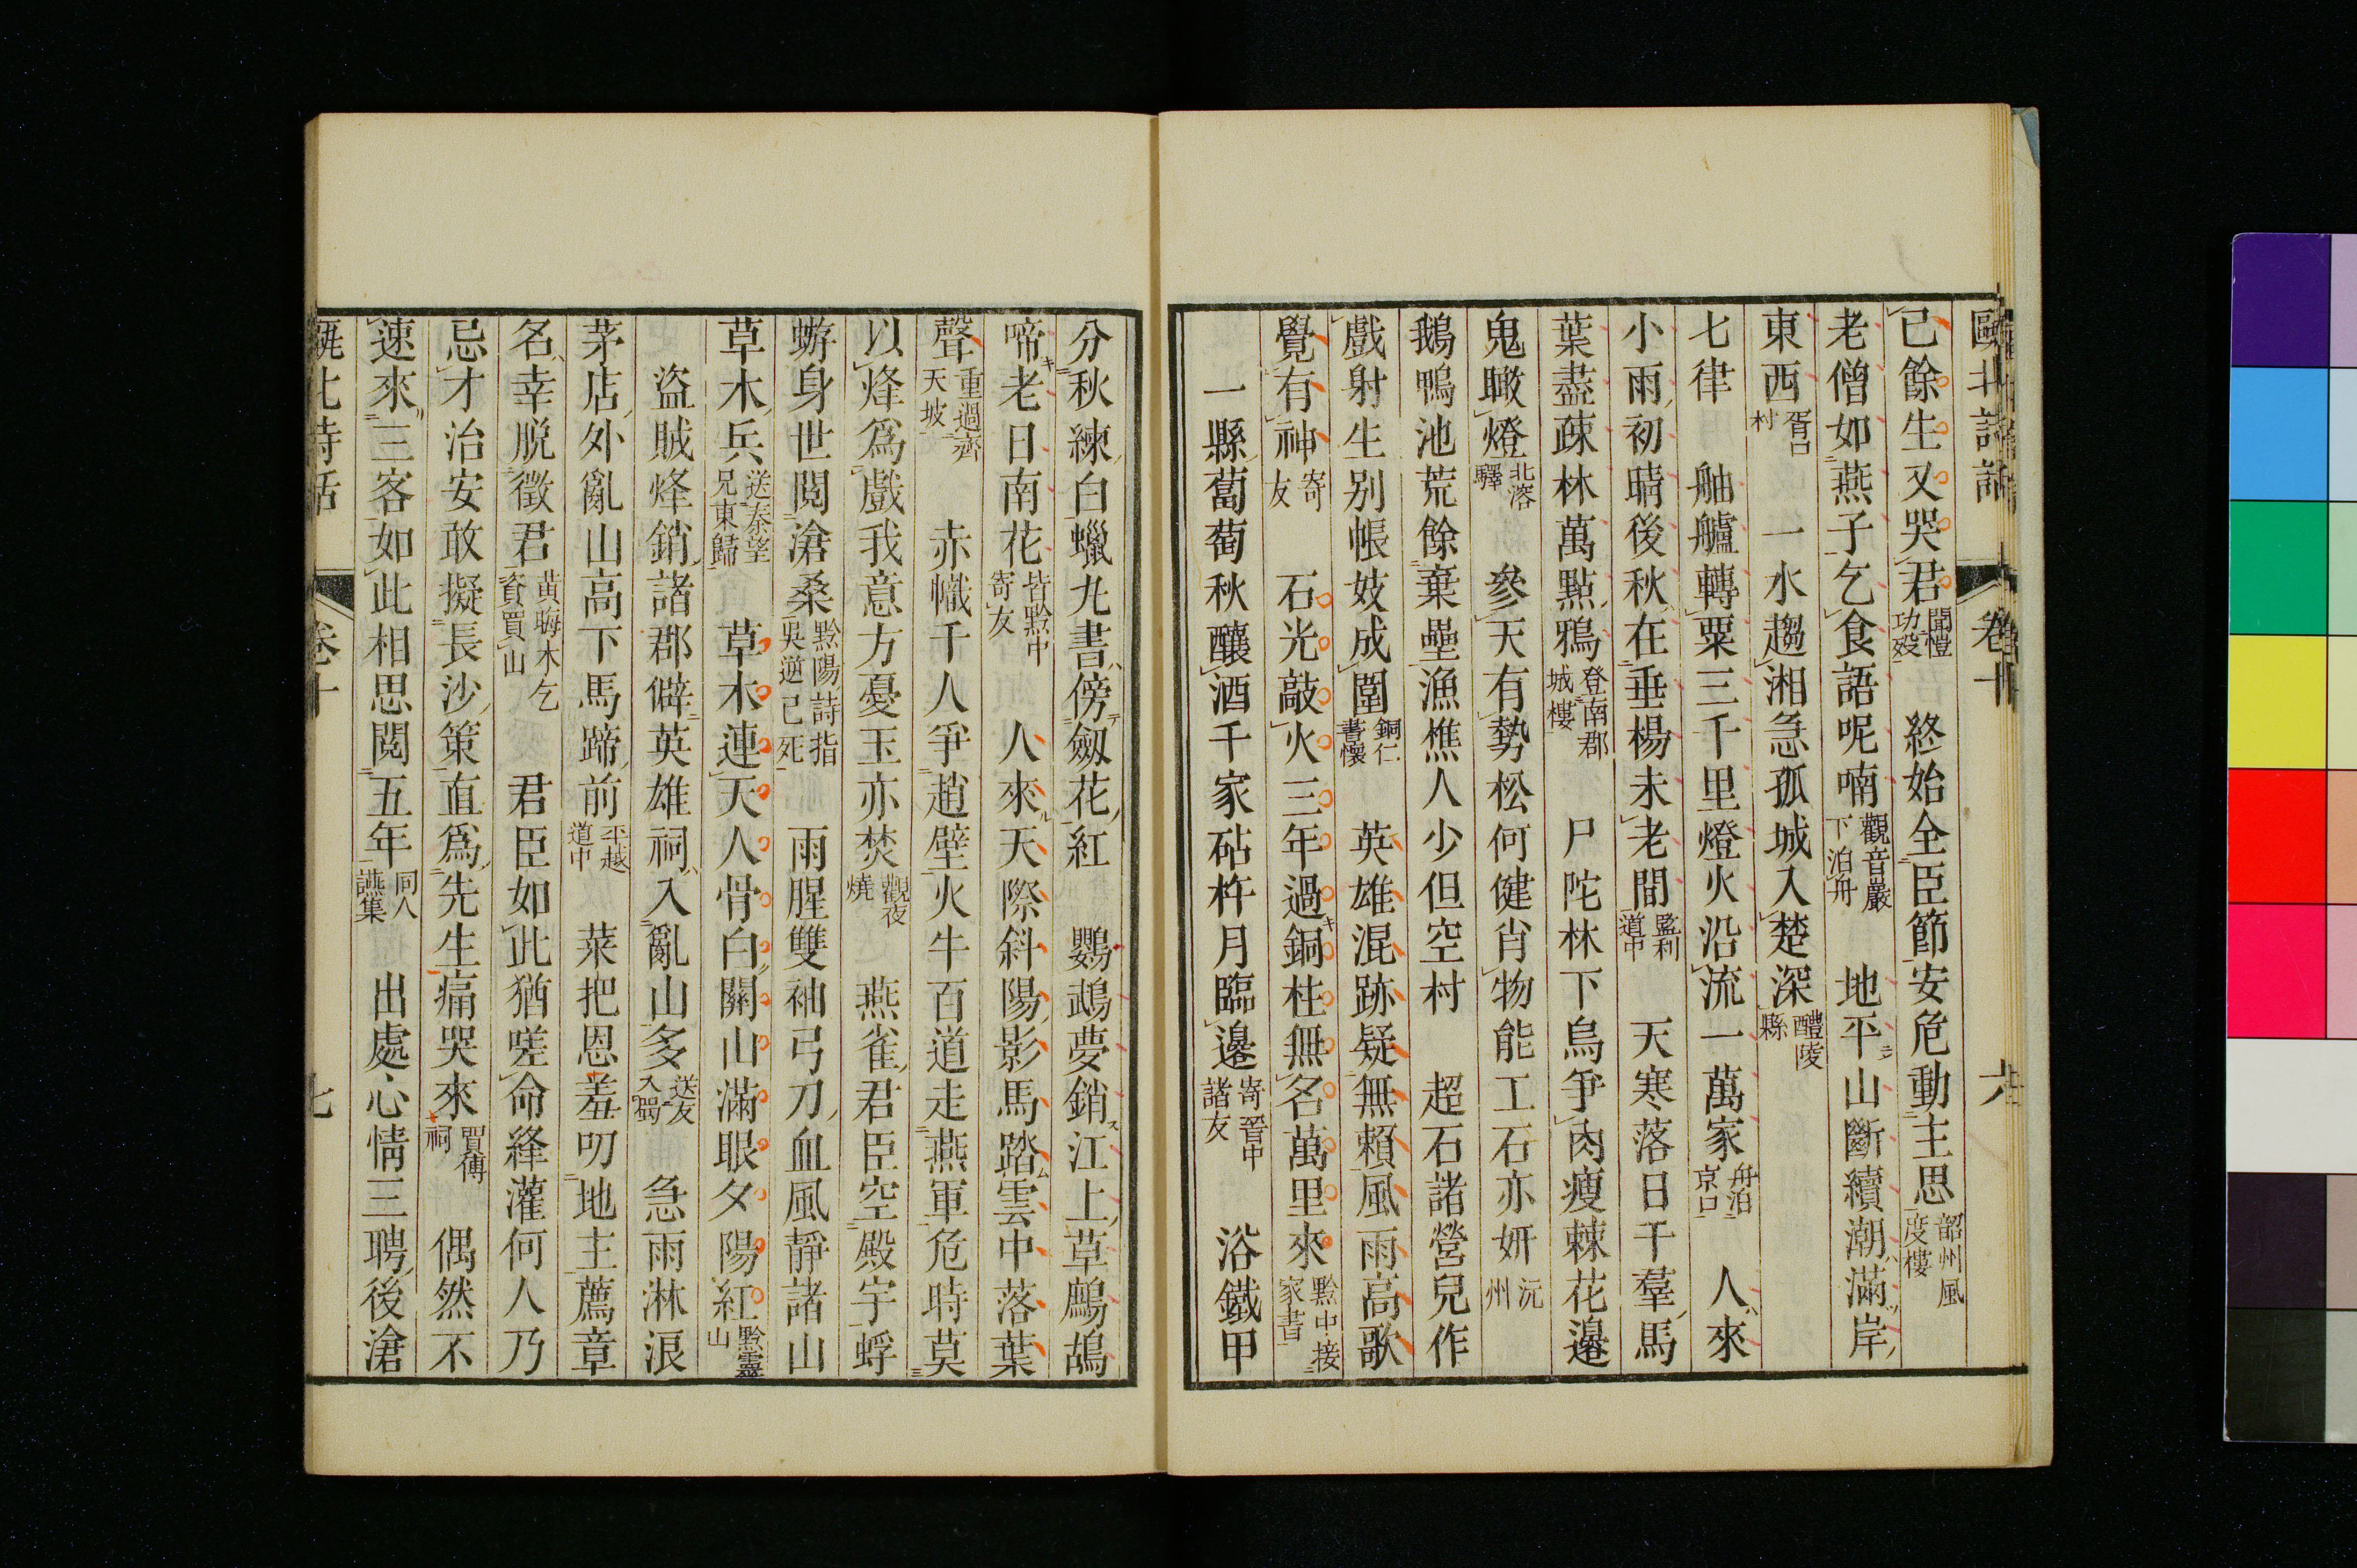 甌北詩話 卷十 六
己餘生又哭君聞豊功歿 終始全臣節安危動主思韶州風度樓
老僧如燕子乞食語呢喃觀音巖下泊舟 地平山斷續潮滿岸
東西胥口村 一水趨湘急孤城入楚深醴陵縣
七律 舳艫轉粟三千里燈火沿流一萬家舟泊京口 人來
小雨初晴後秋在垂楊未老間監利道中 天寒落日千羣馬
葉盡疎林萬點鴉登南郡城樓 尸陀林下烏爭肉瘦棘花邊
鬼瞰燈北溶驛 參天有勢松何健肖物能工石亦妍沅州
鵝鴨池荒餘棄壘漁樵人少但空村 超石諸營兒作
戲射生別帳妓成圍銅仁書懷 英雄混跡疑無賴風雨高歌
覺有神寄友 石光敲火三年過銅柱無名萬里來黔中接家書
一縣蔔萄秋釀酒千家砧杵月臨邊寄晉中諸友 浴鐵甲
分秋練白蠟丸書傍劔花紅 鸚鵡夢銷江上草鷓鴣
啼老日南花皆黔中寄友 人來天際斜陽影馬踏雲中落葉
聲重過齊天坡 赤幟千人爭趙壁火牛百道走燕軍危時莫
以烽爲戲我意方憂玉亦焚觀夜燒 燕雀君臣空殿宇蜉
蝣身世閱滄桑黔陽詩指吳逆已死 雨腥雙袖弓刀血風靜諸山
草木兵送秦望兄東歸 草木連天人骨白關山滿眼夕陽紅黔靈山
盜賊烽銷諸郡僻英雄祠入亂山多送友入蜀 急雨淋浪
茅店外亂山高下馬蹄前平越道中 菜把恩羞叨地主薦章
名幸脱徵君黃晦木乞資買山 君臣如此猶嗟命絳灌何人乃
忌才治安敢擬長沙策直爲先生痛哭來賈傅祠 偶然不
速來三客如此相思閱五年同人讌集 出處心情三聘後滄
甌北詩話 卷十 七